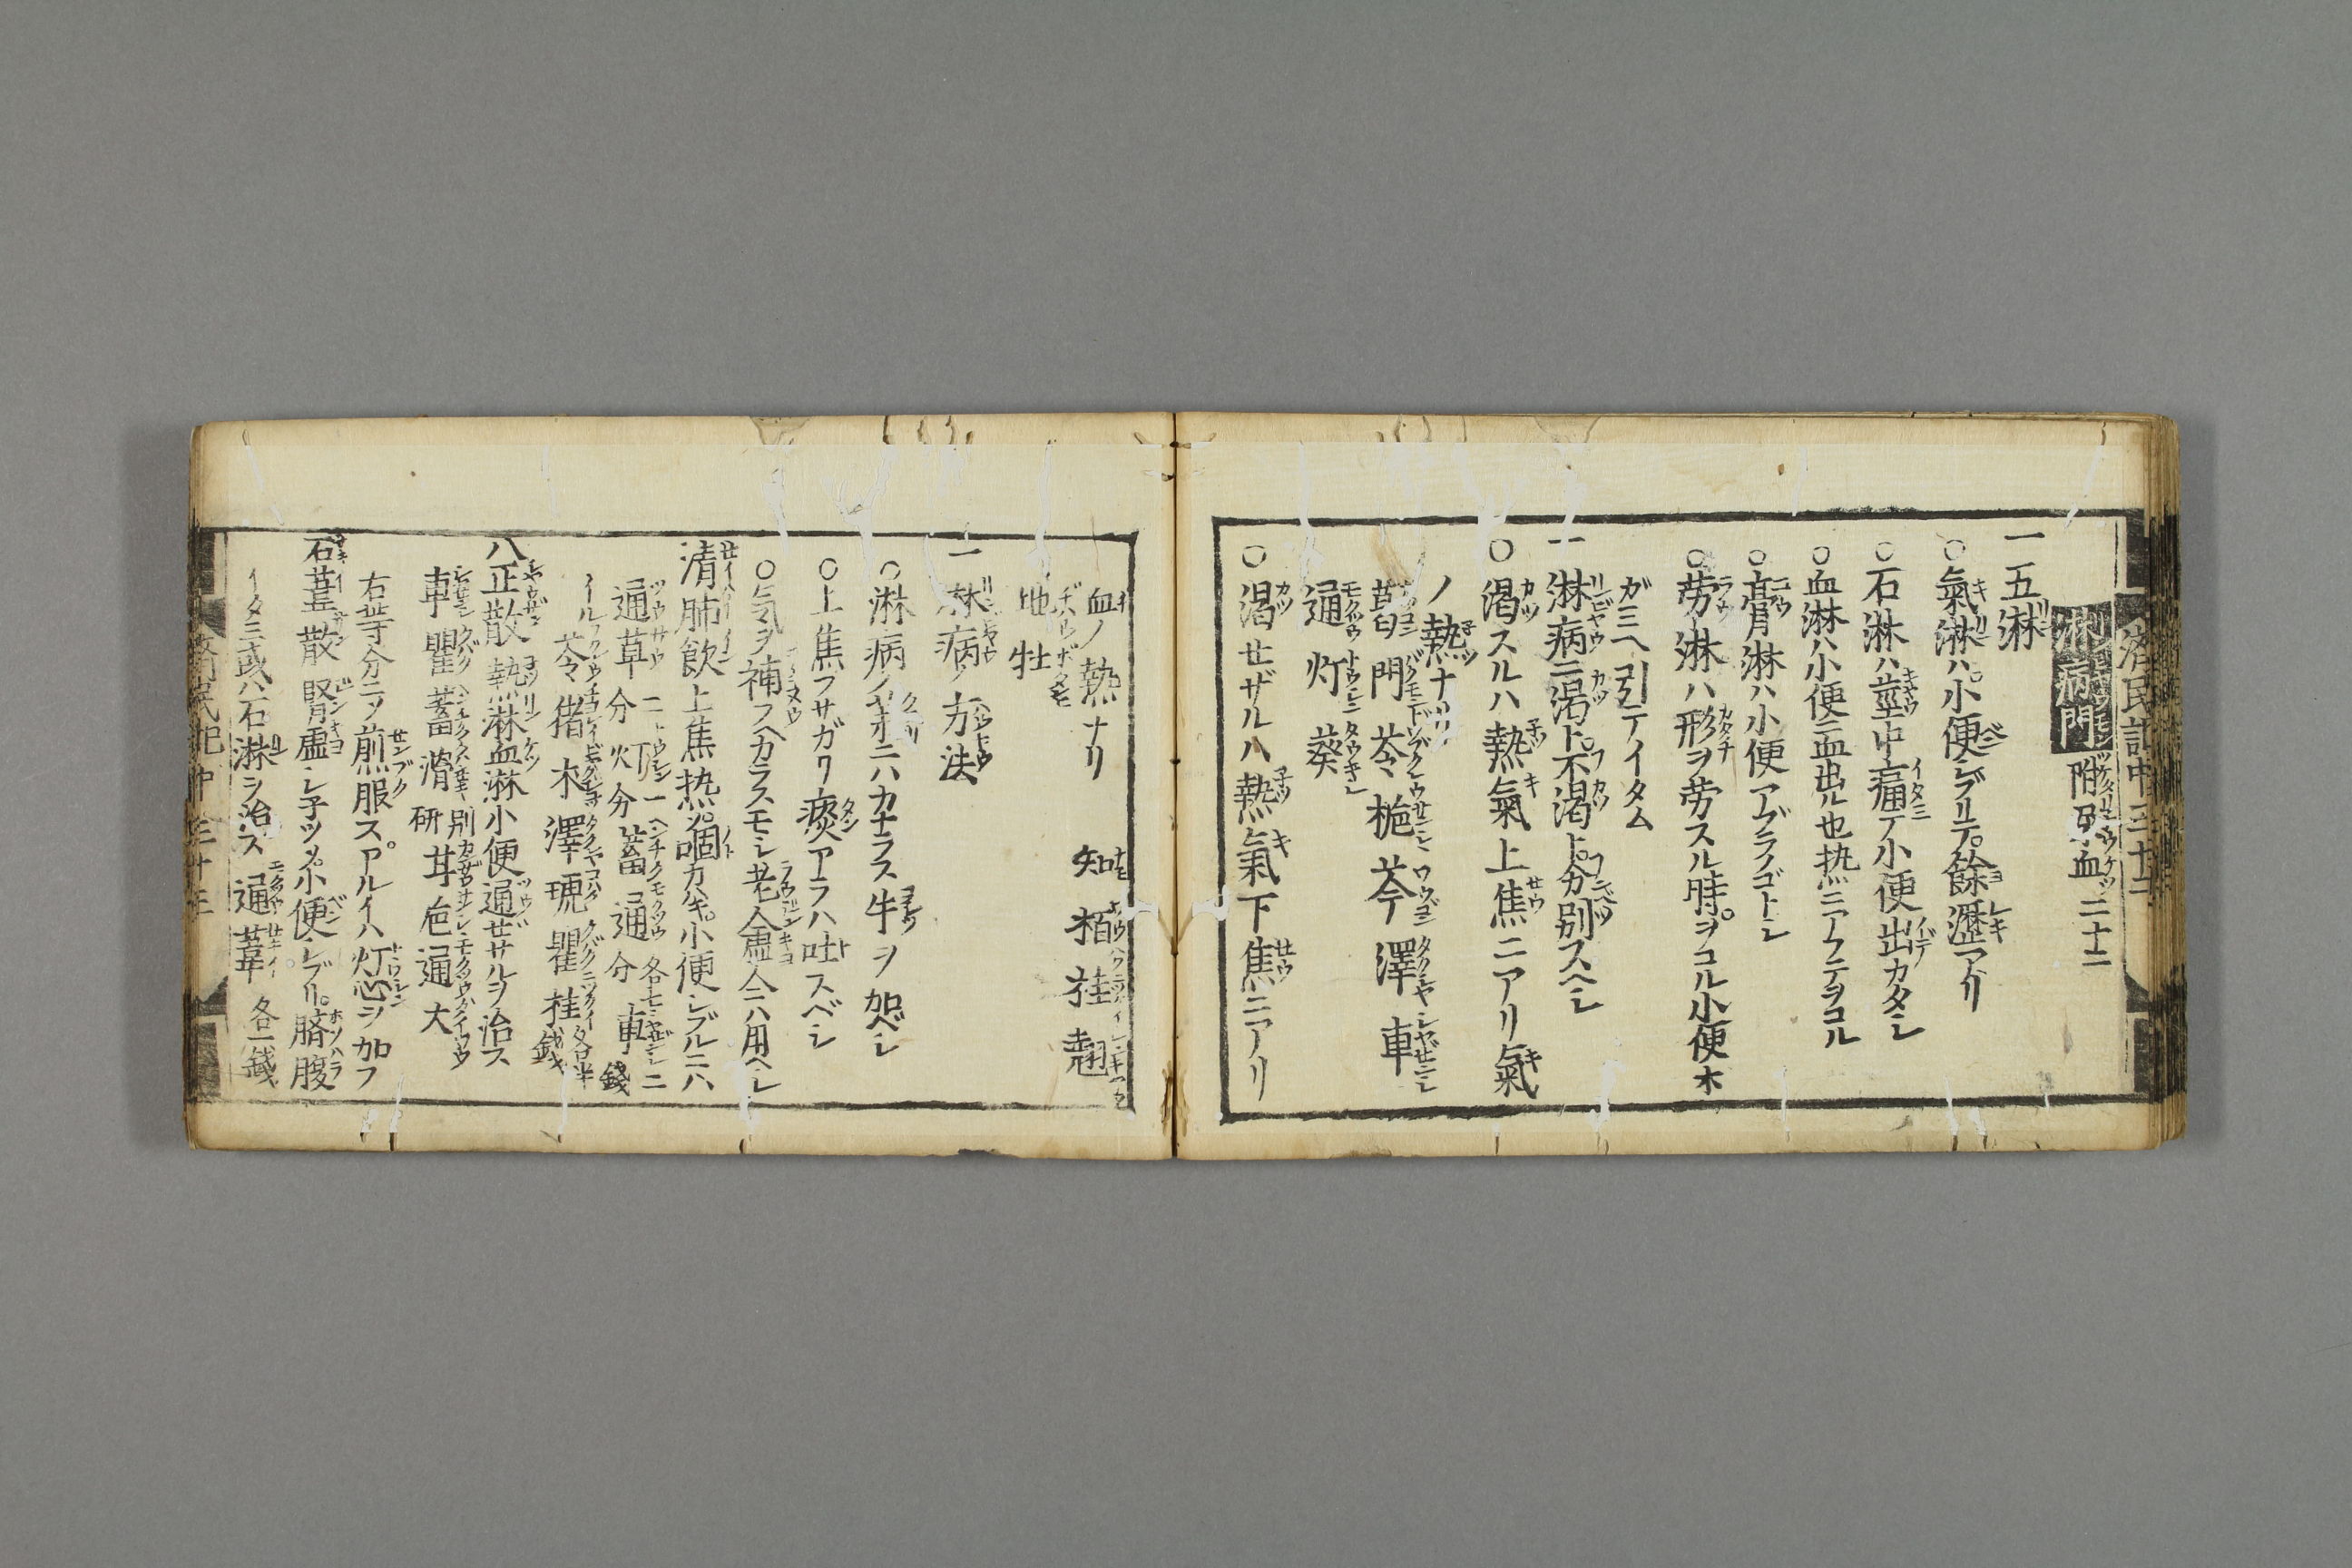 濟民記中三十二
淋病門 附尿血 二十二
一五淋
○氣淋ハ小便シブリテ餘瀝アリ
○石淋ハ莖中痛テ小便出カタシ
○血淋ハ小便ニ血出ル也热ニアフテヲコル
○膏淋ハ小便アブラノゴトシ
○劳淋ハ形ヲ劳スル時ヲコル小便木
ガミヘ引テイタム
一淋病ニ渴ト不渴ト分別スヘシ
○渴スルハ熱氣上焦ニアリ氣
ノ熱ナリ
門 芩 梔 芩 澤 車
通 灯 葵
○渴せザルハ熱氣下焦ニアリ
血ノ熱ナリ 知 栢 桂 翹
地 牡
一淋病ノ方法
○淋病ノ藥ニハカナラス牛ヲ加ベシ
○上焦フサガリ痰アラハ吐スベシ
○気ヲ補フヘカラスモシ老人虚人ニハ用ヘシ
清肺飲 上焦热シ咽カハキ小便シブルニハ
通草 二分 灯 一分 萹 通 各七分 車 二錢
芩 猪 木 澤 琥 瞿 桂 各半錢
八正散 熱淋血淋小便通せサルヲ治ス
車 瞿 萹 滑 別研 甘 巵 通 大
右等分ニメ煎服スアルイハ灯心ヲ加フ
石葦散 腎虚シ子ツメ小便シブリ臍腹
イタミ或ハ石淋ヲ治ス 通 葦 各一錢
濟民記中 三十三